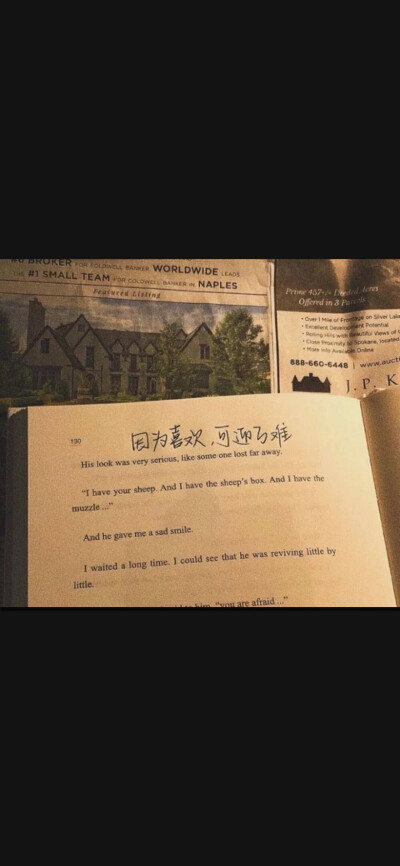 #6 BROKER FOR COLDWELL BANKER WORLDWIDE LEADS
THE #1 SMALL TEAM FOR COLDWELL BANKER IN NAPLES
Featured Listing
Prime 457+/- Divided Acres
Offered in 3 Parcels
• Over 1 Mile of Frontage on Silver Lake
• Excellent Development Potential
• Rolling Hills with Beautiful Views of
• Close Proximity to Spokane, located
• More Info Available Online
888-660-6448 | www.auct
J. P. K
130
因为喜欢,可迎万难
His look was very serious, like some one lost far away.
"I have your sheep. And I have the sheep's box. And I have the
muzzle..."
And he gave me a sad smile.
I waited a long time. I could see that he was reviving little by
little.
him, "you are afraid..."